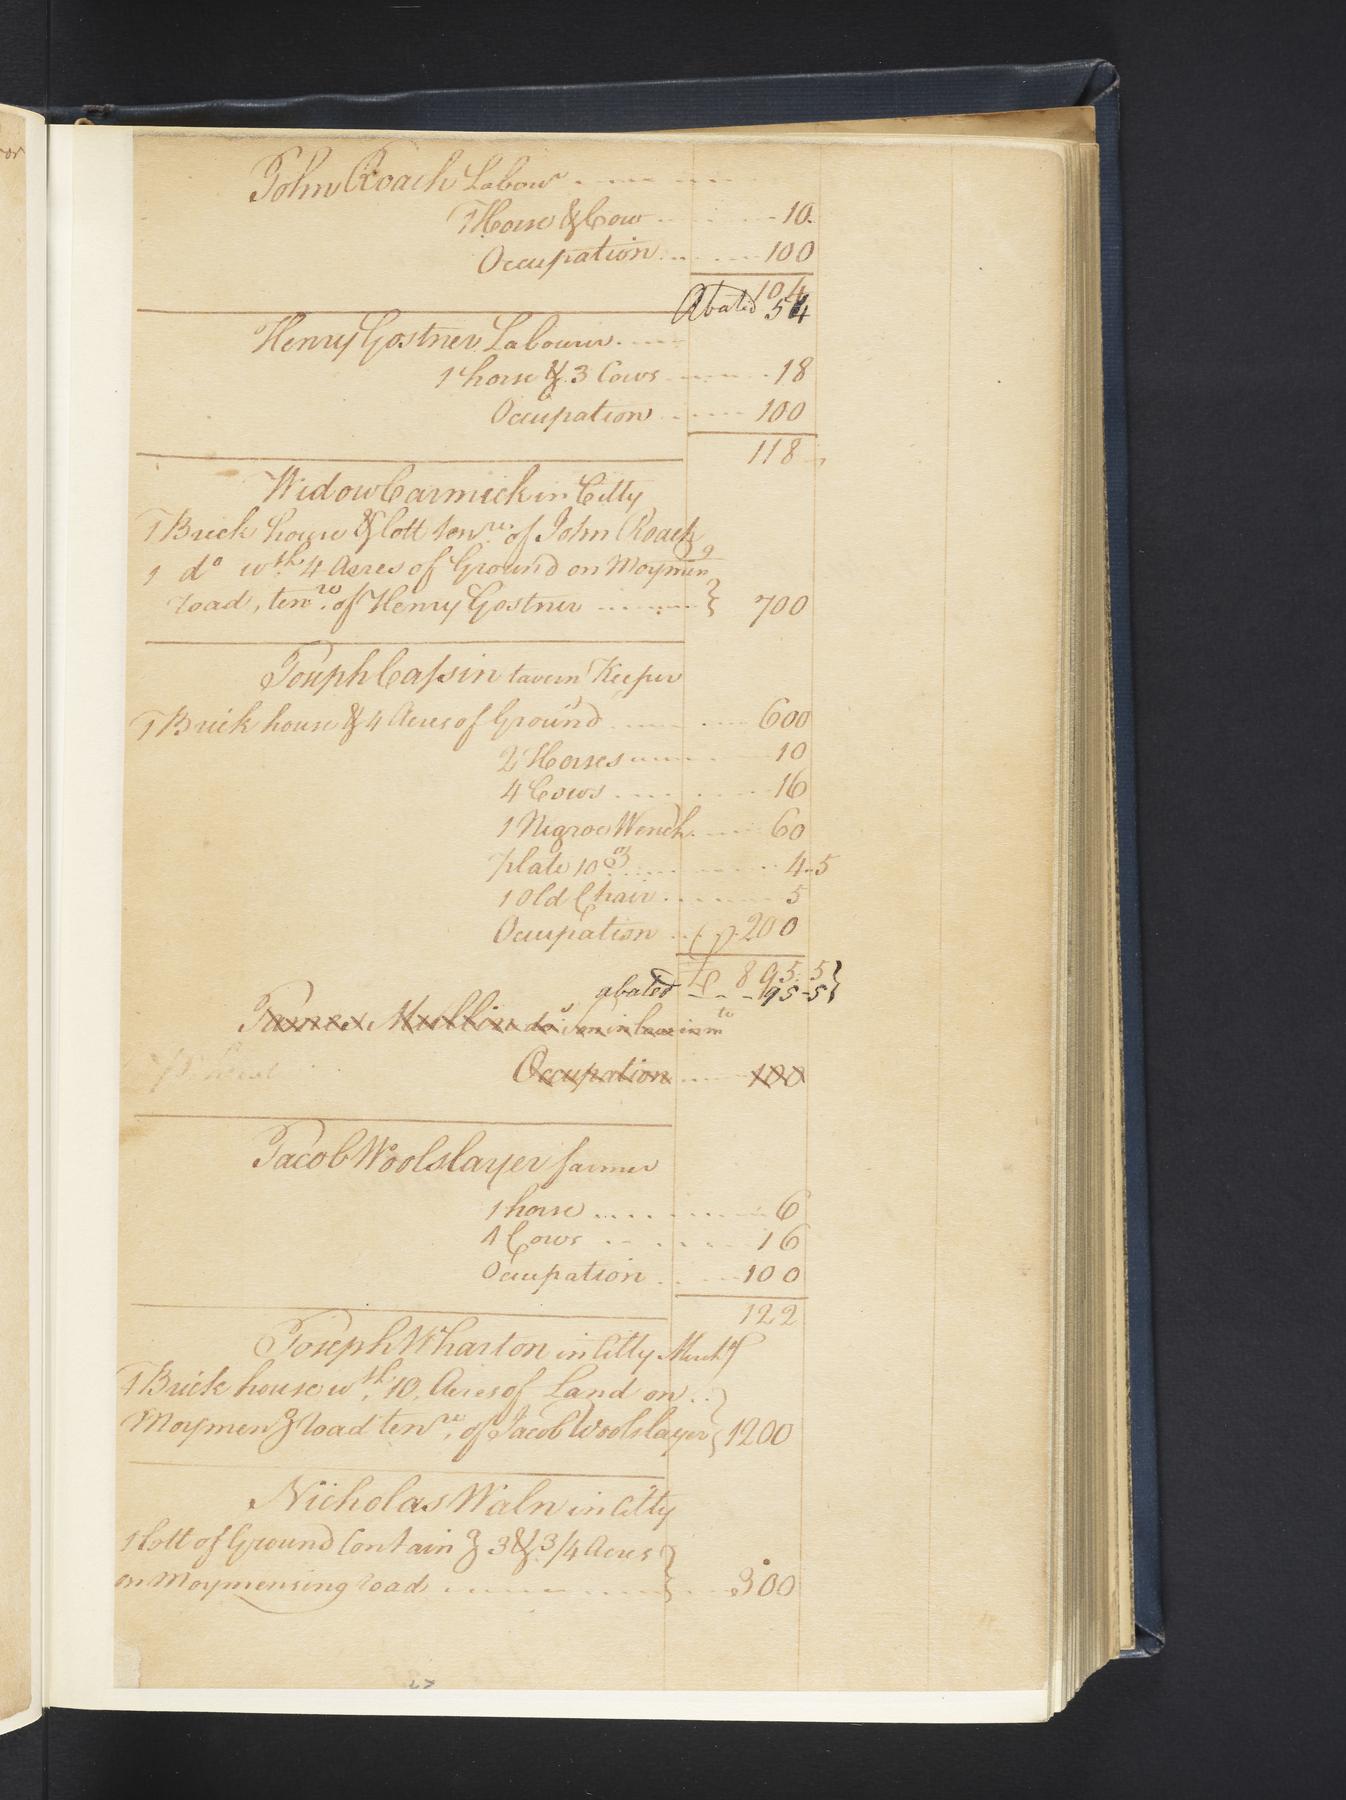 John Roach Labour
1 Horse & Cow 10
Occupation 100
104
Abated 54
Henry Gostner Labourer
1 horse & 3 Cows 18
Occupation 100
118
Widow Carmick in Citty
1 Brick house & lott tenre of John Roach
1 do wth 4 Acres of Ground on Moymeng
road, tenre of Henry Gostner } 700
Joseph Cassin tavern Keeper
1 Brick house & 4 Acres of Ground 600
2 Horses 10
4 Cows 16
1 Negroe Wench 60
plate 10 oz 4-5
1 Old Chair 5
Occupation 200
£ 895. 5 }
abated 95-5 }
James Mullin do Son in law in m to
Occupation 100
Jacob Woolslayer farmer
1 horse 6
4 Cows 16
Occupation 100
122
Joseph Wharton in Citty Mercht
1 Brick house wth 10 Acres of Land on }
Moymeng road tenre of Jacob Woolslayer } 1200
Nicholas Waln in Citty
1 lott of Ground Containg 3 & 3/4 Acres }
on Moymensing road } 300